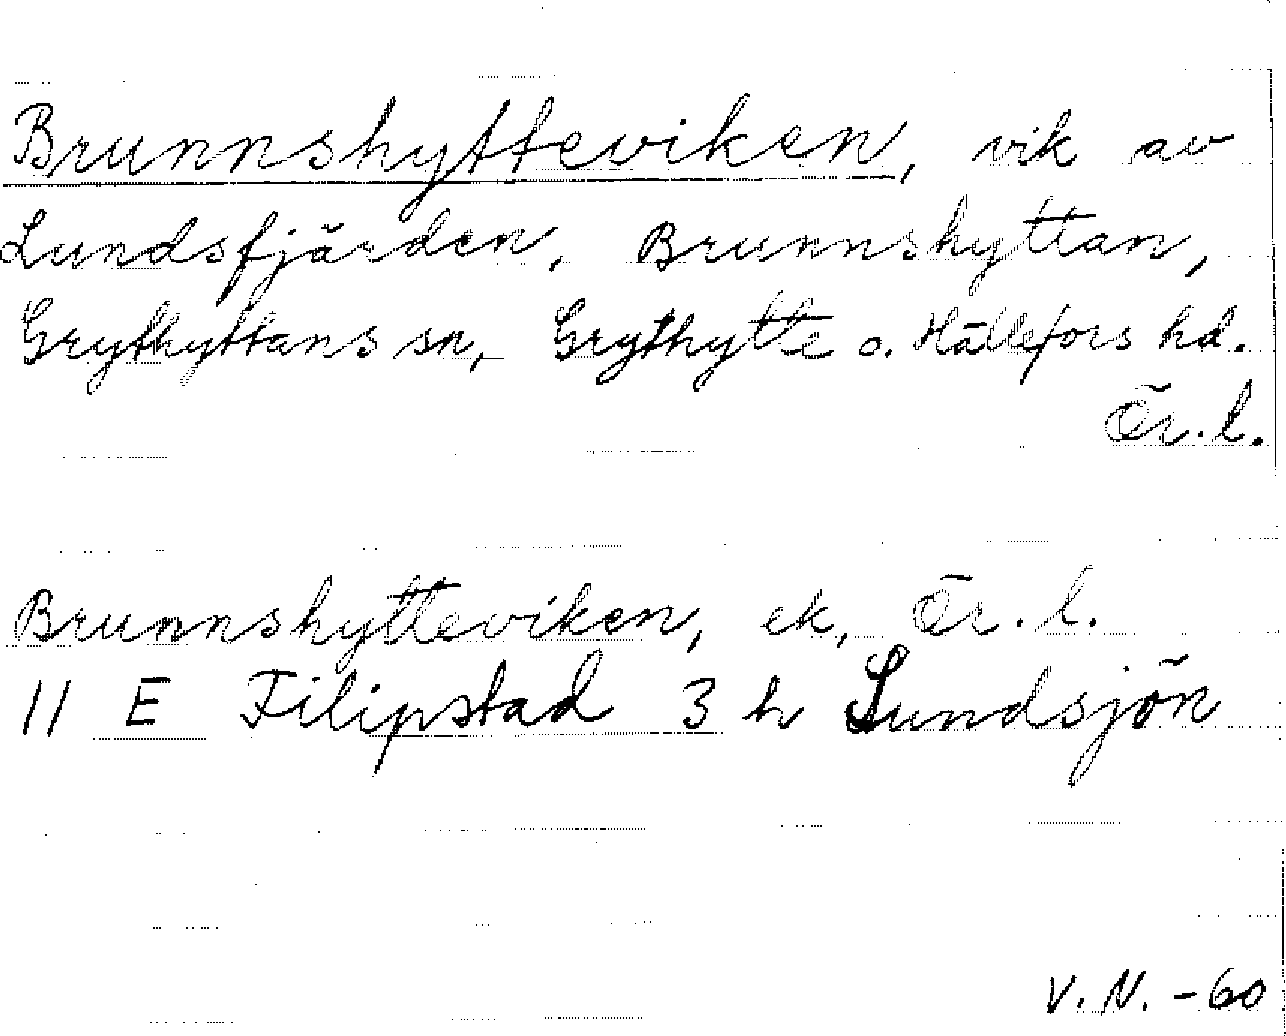 Brunnshytteviken, vik av
Lundsfjärden, Brunnshyttan,
Grythyttans sn, Grythytte o. Hällefors hd.
Ör. l.
Brunnshytteviken, ek, Ör. l.
11 E Filipstad 3 h Lundsjön
V. N. -60